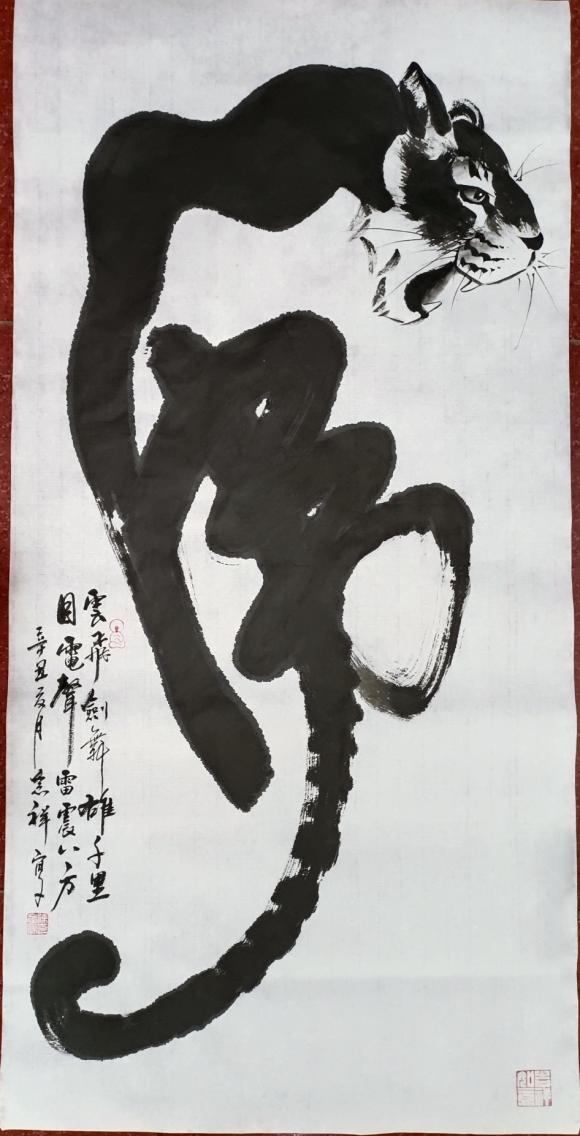 虎
雲飛劍舞雄千里
目電聲雷震八方
辛丑夏月祥